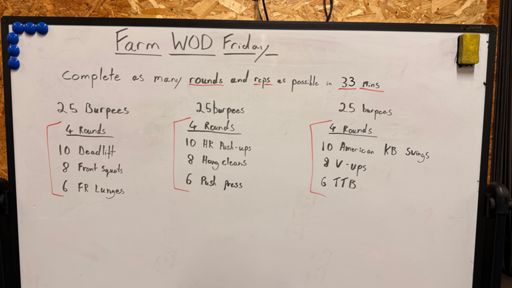 Farm WOD Friday
Complete as many rounds and reps as possible in 33 Mins
25 Burpees
4 Rounds
10 Deadlift
8 Front Squats
6 FR Lunges
25 burpees
4 Rounds
10 HR Push-ups
8 Hang cleans
6 Push press
25 burpees
4 Rounds
10 American KB Swings
8 V-ups
6 TTB